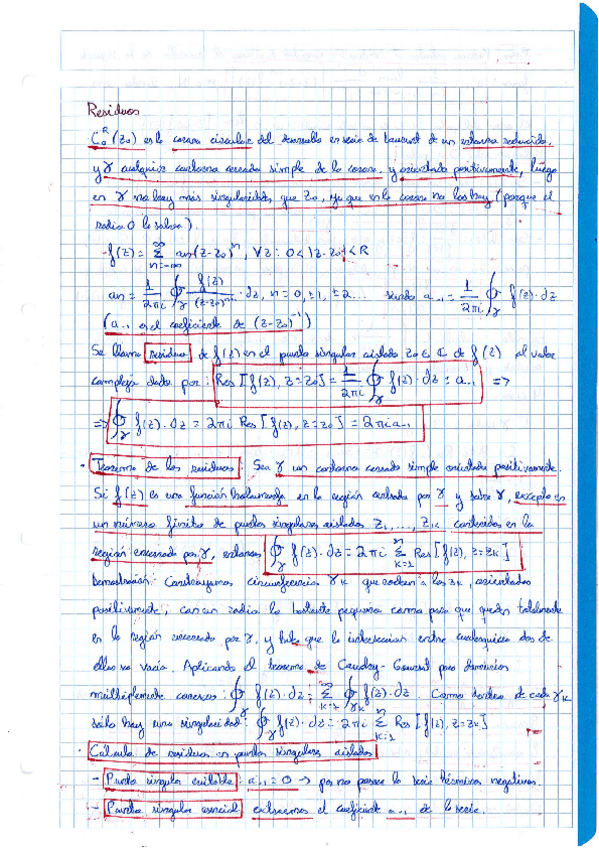 Residuos
C₀ᴿ(z₀) es la corona circular del desarrollo en serie de Laurent de un entorno reducido,
y γ cualquier contorno cerrado simple de la corona, y orientado positivamente, luego
en γ no hay más singularidades que z₀, ya que en la corona no las hay (porque el
radio 0 la salva).
f(z) = ∑_{n=-∞}^{∞} an(z-z₀)ⁿ, ∀z: 0<|z-z₀|<R
an = 1/2πi ∮_γ f(z)/(z-z₀)ⁿ⁺¹ · dz, n=0,±1,±2... siendo a₋₁ = 1/2πi ∮_γ f(z)·dz
(a₋₁ es el coeficiente de (z-z₀)⁻¹)
Se llama residuo de f(z) en el punto singular aislado z₀ ∈ ℂ de f(z) al valor
complejo dado por: Res[f(z), z=z₀] = 1/2πi ∮_γ f(z)·dz = a₋₁ =>
=> ∮_γ f(z)·dz = 2πi Res[f(z), z=z₀] = 2πi a₋₁
· Teorema de los residuos: Sea γ un contorno cerrado simple orientado positivamente.
Si f(z) es una función holomorfa en la región encerrada por γ y sobre γ, excepto en
un número finito de puntos singulares aislados z₁,...,zₖ contenidos en la
región encerrada por γ, entonces ∮_γ f(z)·dz = 2πi ∑_{k=1}^{n} Res[f(z), z=zₖ]
Demostración: Construyamos circunferencias γₖ que rodean a los zₖ, orientadas
positivamente, con un radio lo bastante pequeño como para que queden totalmente
en la región encerrada por γ, y que la intersección entre cualesquiera dos de
ellas sea vacía. Aplicando el teorema de Cauchy-Goursat para dominios
múltiplemente conexos: ∮_γ f(z)·dz = ∑_{k=1}^{n} ∮_γₖ f(z)·dz. Como dentro de cada γₖ
sólo hay una singularidad: ∮_γ f(z)·dz = 2πi ∑_{k=1}^{n} Res[f(z), z=zₖ]
· Cálculo de residuos en puntos singulares aislados
- Punto singular evitable: a₋₁=0 → por no poseer la serie términos negativos.
- Punto singular esencial: extraemos el coeficiente a₋₁ de la serie.